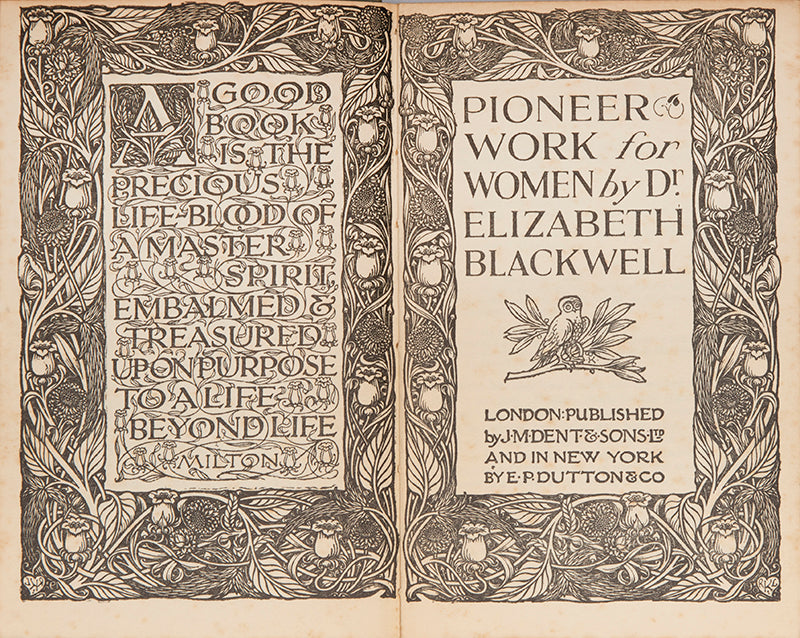 A GOOD
BOOK
IS THE
PRECIOUS
LIFE-BLOOD OF
A MASTER
SPIRIT,
EMBALMED &
TREASURED
UPON PURPOSE
TO A LIFE
BEYOND LIFE
MILTON
PIONEER
WORK for
WOMEN by Dr.
ELIZABETH
BLACKWELL
LONDON: PUBLISHED
by J. M. DENT & SONS LTD
AND IN NEW YORK
BY E. P. DUTTON & CO